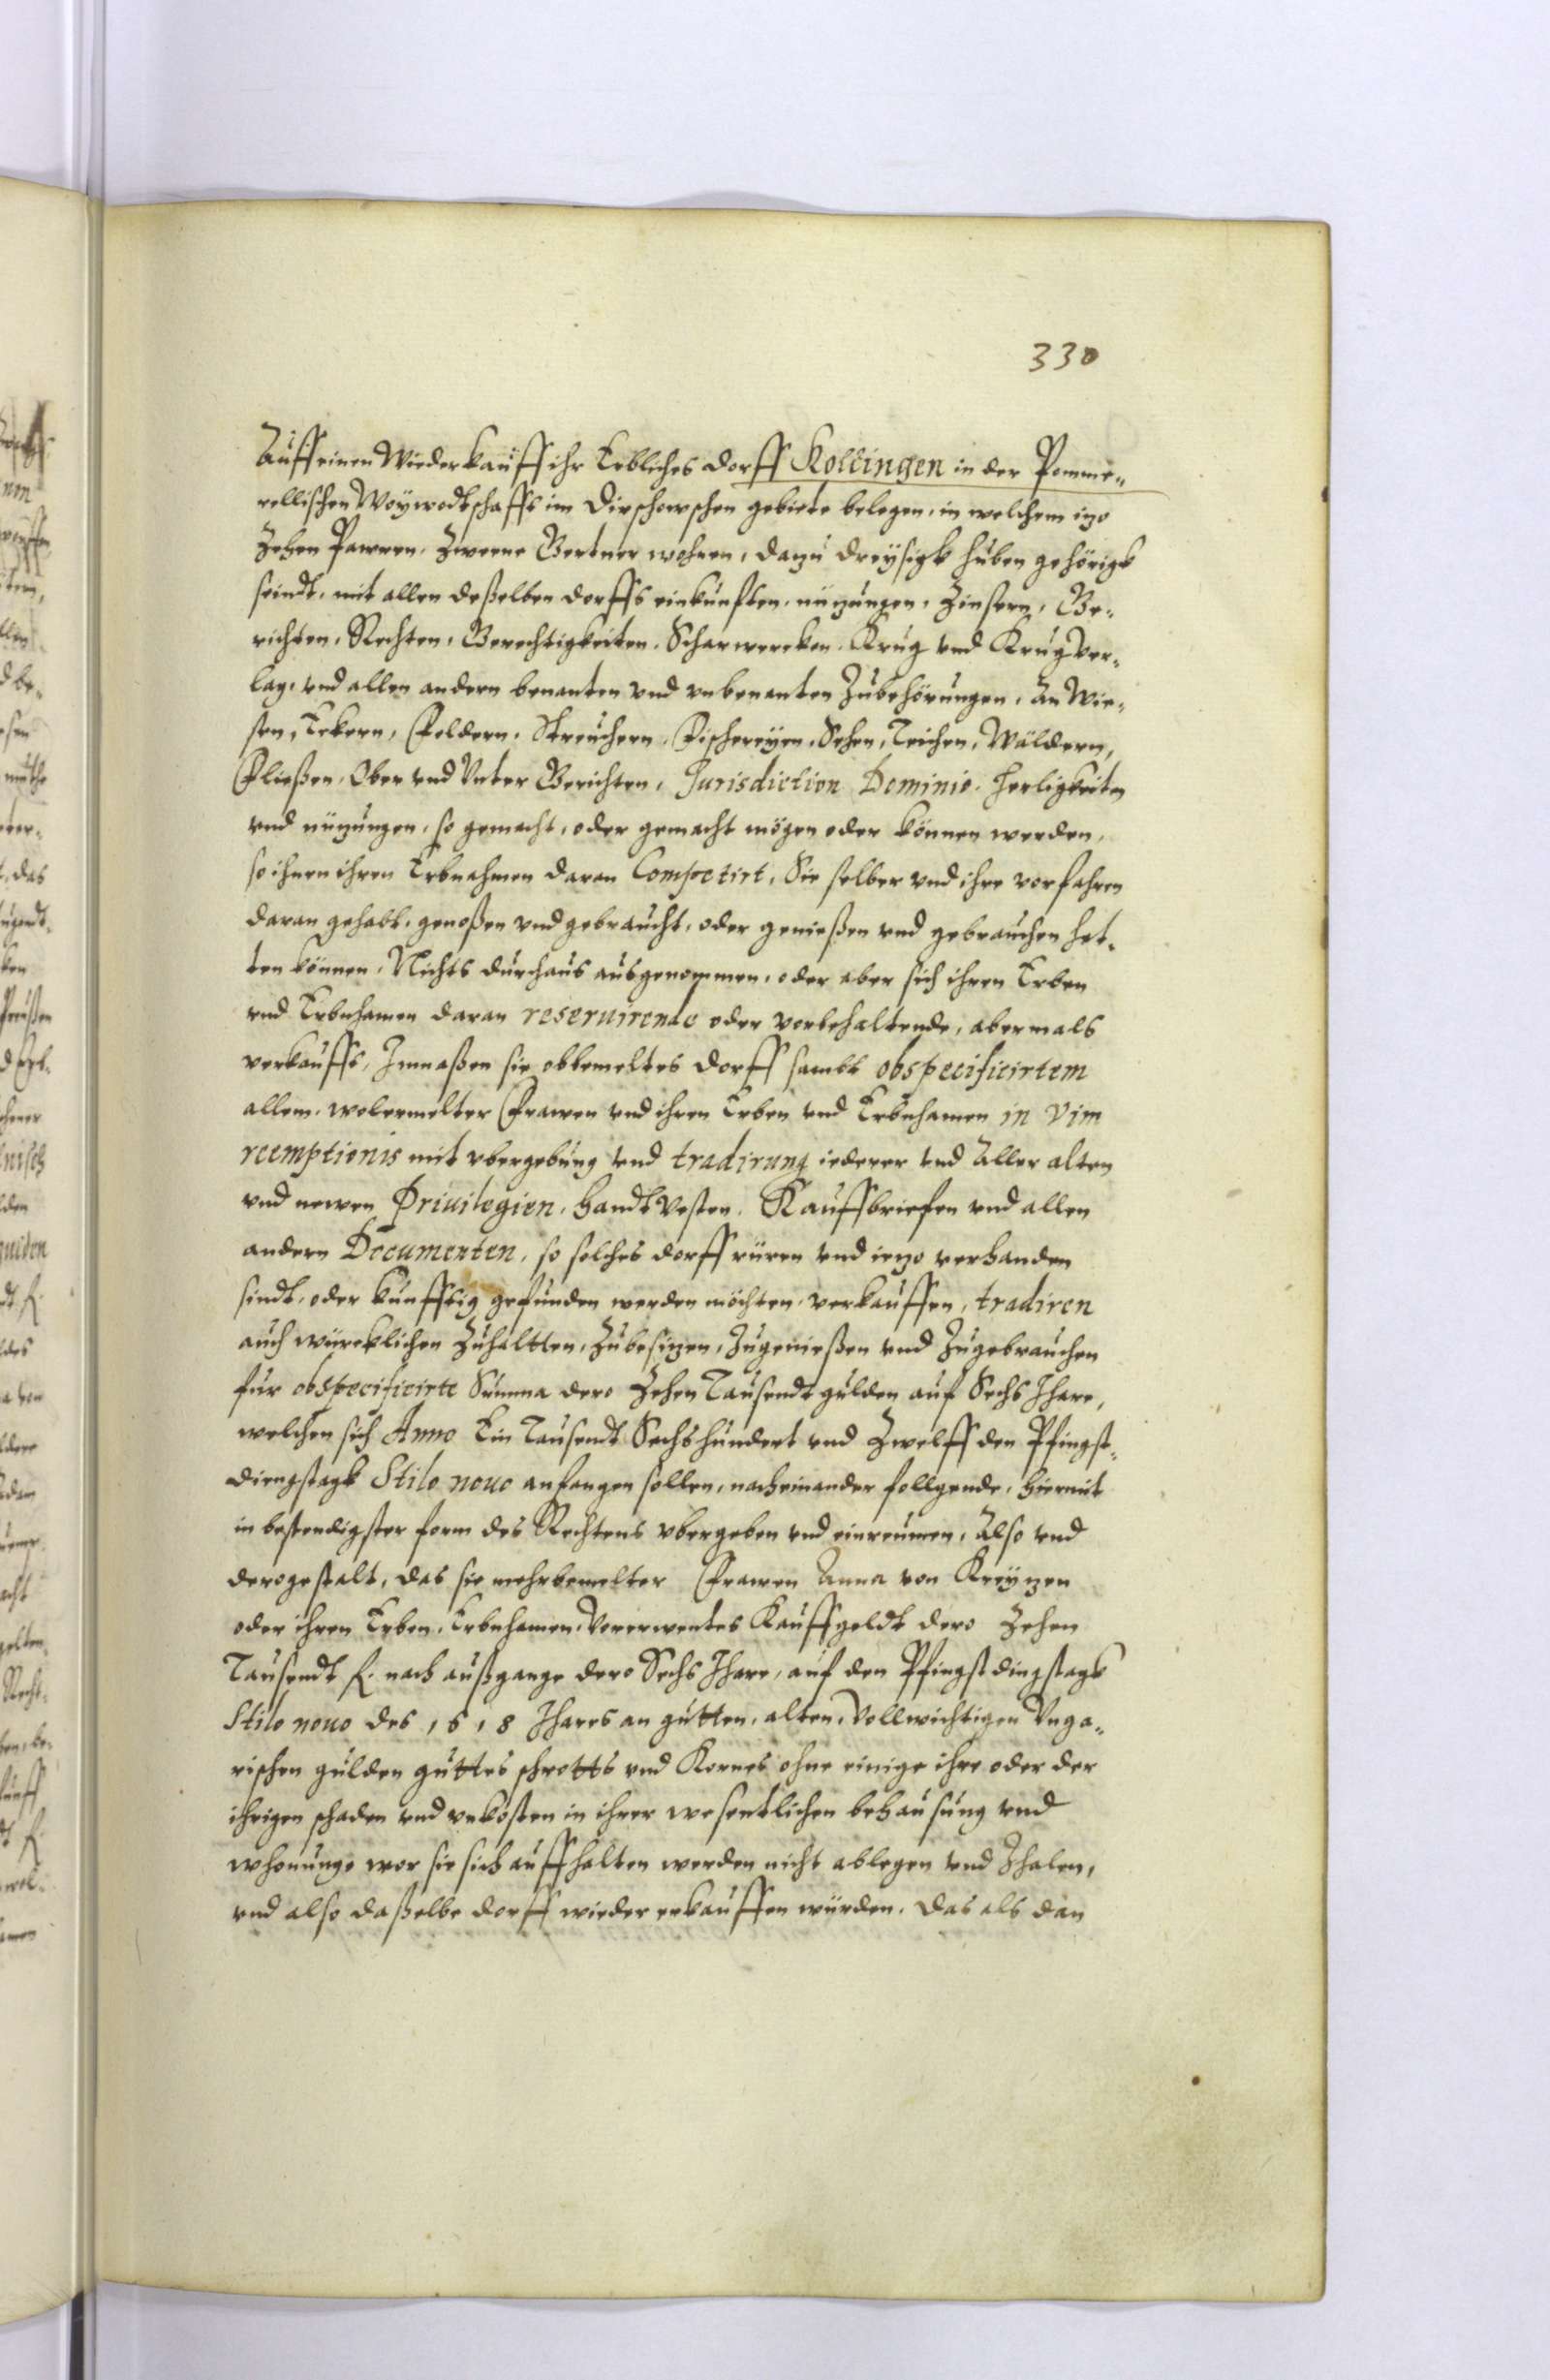 330
Auff einen Wiederkauff ihr Erbliches dorff Kollingen in der Pomme-
rellischen Woywodtschafft im Dirschowschen gebiete belegen, in welchem izo
Zehen Pawren, Zweene Gertner wohnen, dazu dreysigk huben gehörigk
seindt, mit allen deßelben dorffs einkünften, nüzungen, Zinsern, Ge-
richten, Rechten, Gerechtigkeiten, Scharwercken, Krug vnd Krug ver-
lag, vnd allen andern benanten vnd vnbenanten Zubehörungen, An Wie-
sen, Eckern, Feldern, Streuchern, Fischereyen, Sehen, Teichen, Wäldern,
Fließen, Ober vnd Vnter Gerichten, Jurisdiction Dominio, herligkeiten
vnd nüzungen, so gemacht, oder gemacht mögen oder können werden,
so ihnen ihren Erbnahmen daran Competirt, Sie selber vnd ihre vorfahren
daran gehabt, genoßen vnd gebraucht, oder genießen vnd gebrauchen het-
ten können, Nichts durchaus ausgenommen, oder aber sich ihren Erben
vnd Erbnhamen daran reseruirende oder vorbehaltende, abermals
verkaufft, Inmaßen sie obbemeltes dorff sambt obspecificirtem
allem, wolermelter Frawen vnd ihren Erben vnd Erbnhamen in vim
reemptionis mit vbergebung vnd tradirung iederer vnd Aller alten
vnd newen Priuilegien, handtvesten, Kauffbriefen vnd allen
andern Documenten, so solches dorff rüren vnd iezo verhanden
sindt, oder kunfftig gefunden werden möchten, verkauffen, tradiren
auch würcklichen Zuhaltten, Zubesizen, Zugenießen vnd Zugebrauchen
fur obspecificirte Summa dero Zehen Tausendt gulden auf Sechs Jhare,
welchen sich Anno Ein Tausendt Sechshundert vnd Zwelff den Pfingst-
diengstagk Stilo nouo anfangen sollen, nacheinander follgende, hiermit
in bestendigster form des Rechtens vbergeben vnd einreumen, Also vnd
derogestalt, das sie mehrbemelter Frawen Anna von Kreyzen
oder ihren Erben, Erbnhamen, Vorerwentes Kauffgeldt dero Zehen
Tausendt f. nach außgange dero Sechs Jhare, auf den Pfingstdingstagk
Stilo nouo des 1618 Jhares an gutten, alten, Vollwichtigen Vnga-
rischen gulden guttes schrotts vnd Kornes ohne einige ihre oder der
ihrigen schaden vnd vnkosten in ihrer wesentlichen behausung vnd
whonunge wor sie sich auffhalten werden nicht ablegen vnd Zhalen,
vnd also daßelbe dorff wieder erkauffen würden. Das als dan